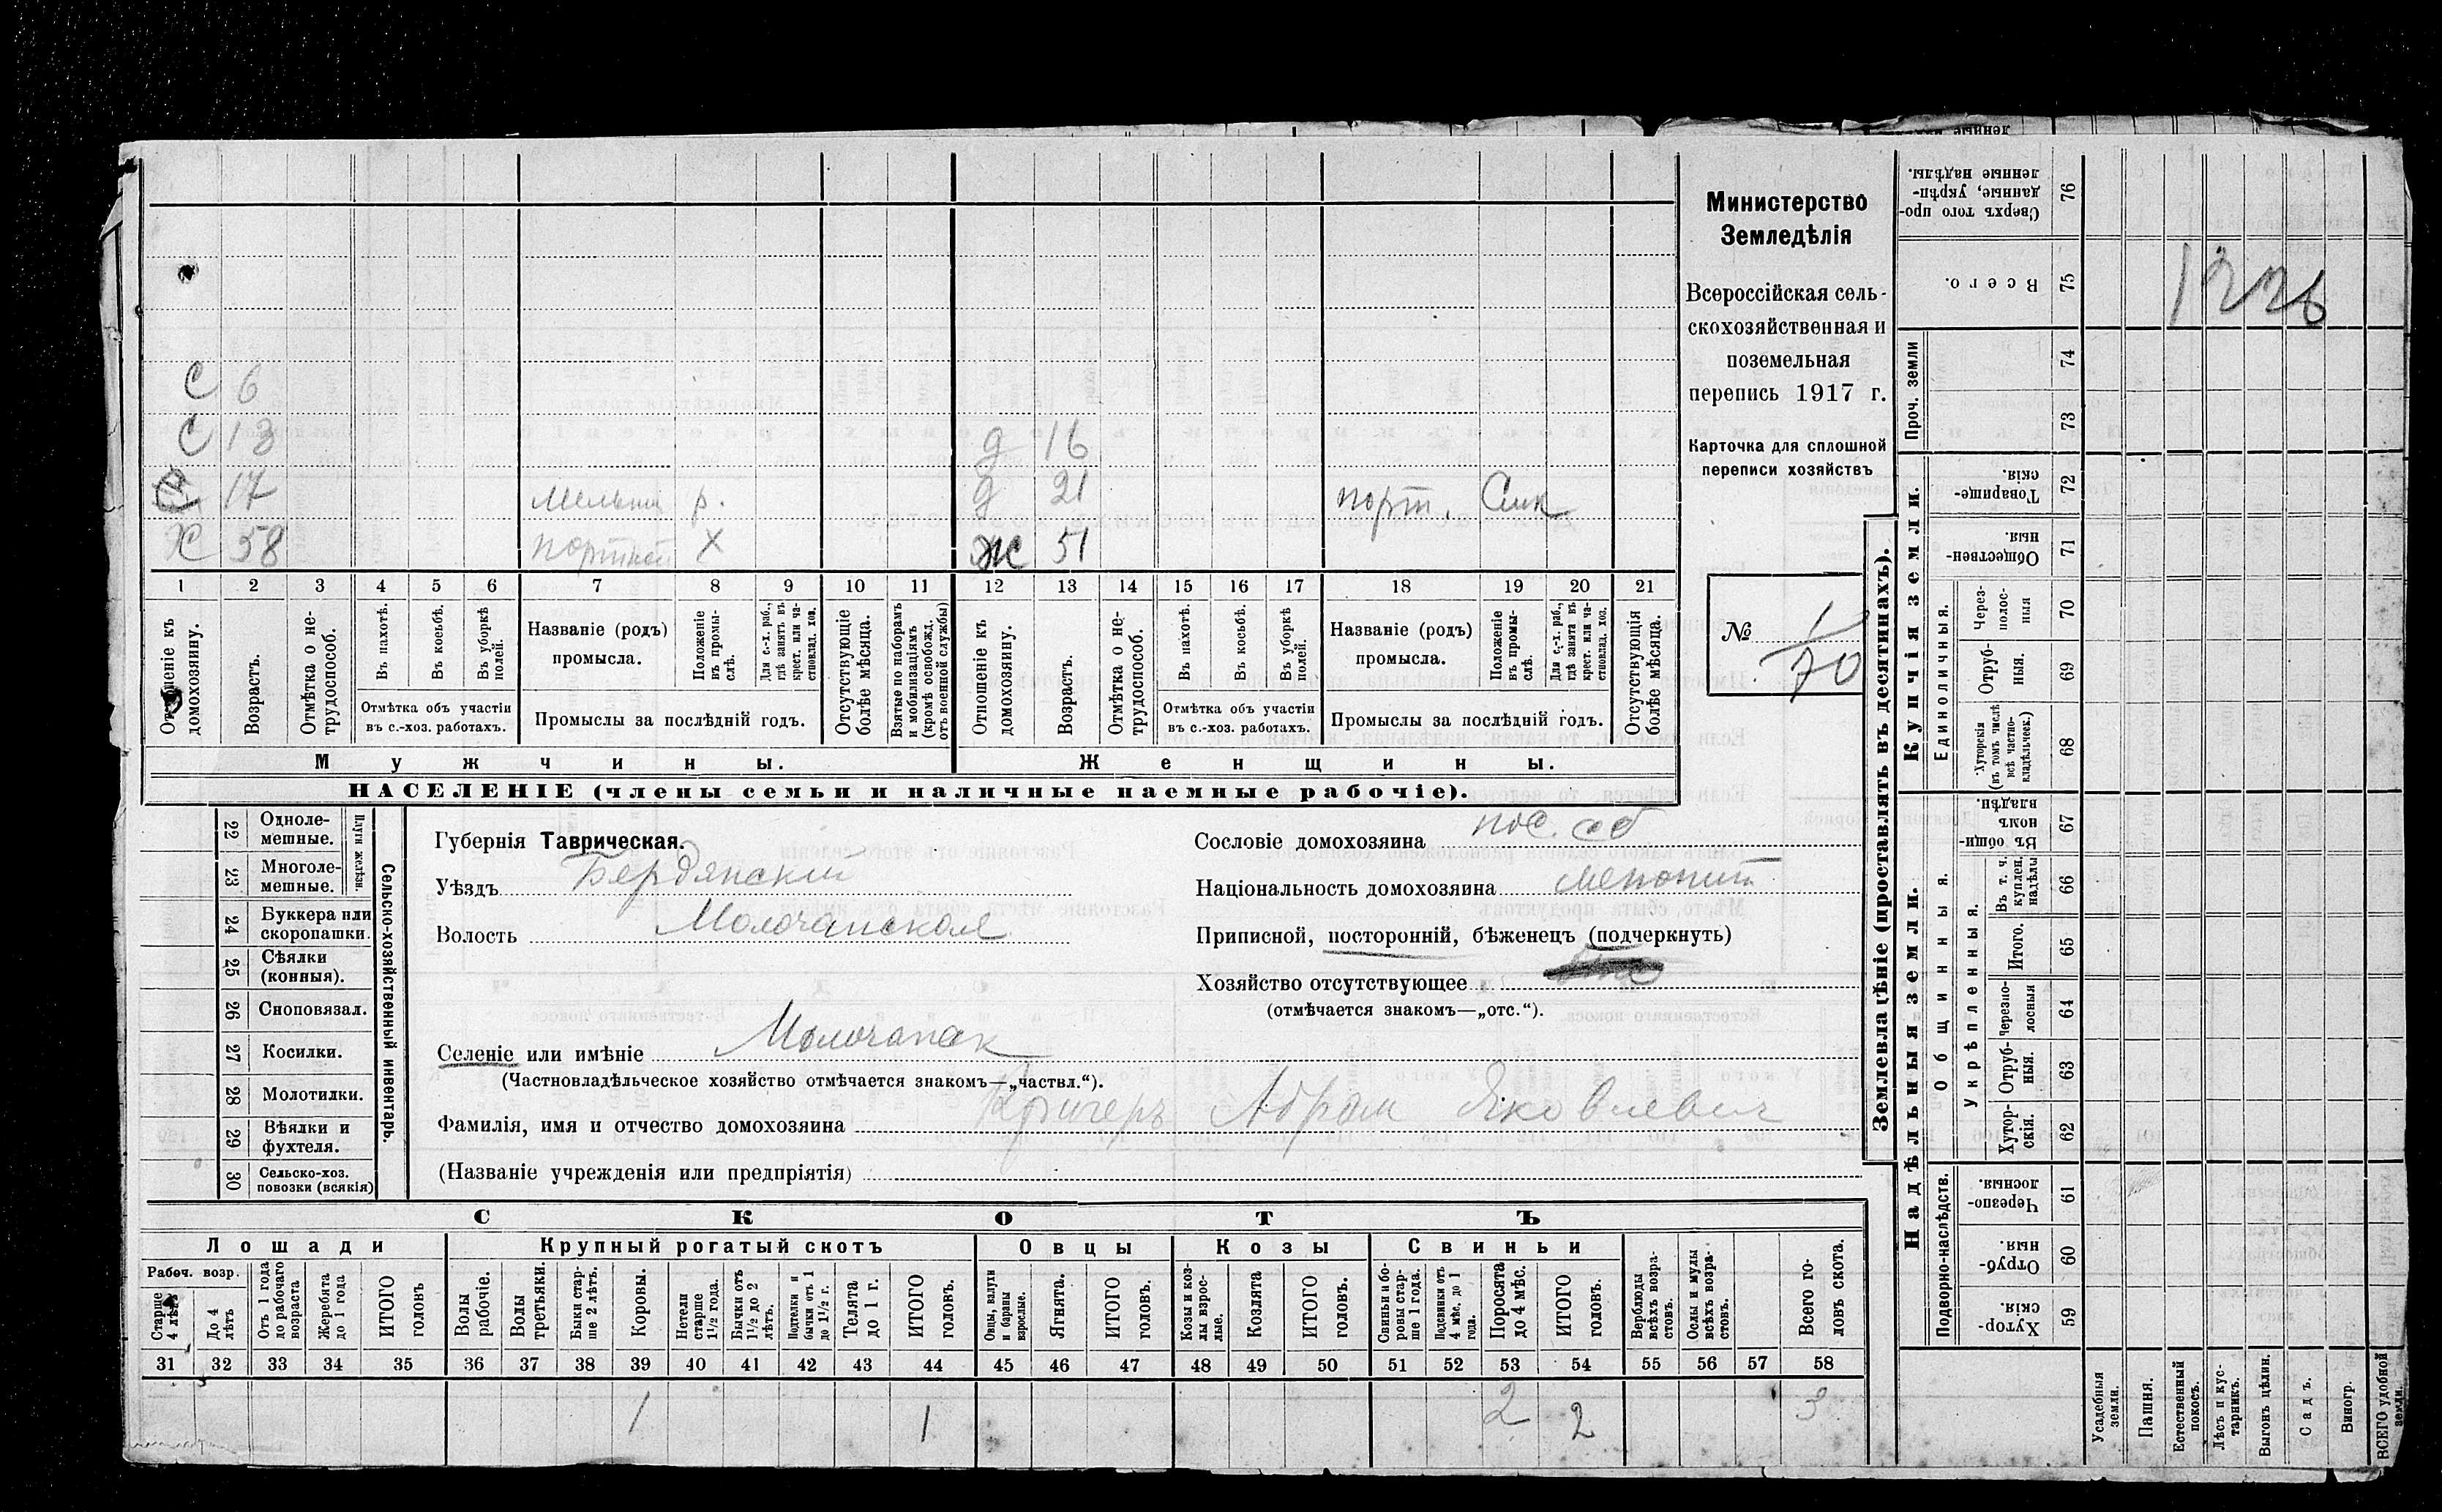 Министерство
Земледѣлія
Всероссійская сель-
скохозяйственная и
поземельная
перепись 1917 г.
Карточка для сплошной
переписи хозяйствъ
№ 1
70
С 6
С 13 д 16
С 17 р. д 21 порт.
Х 58 портной Х Ж 51
1 2 3 4 5 6 7 8 9 10 11 12 13 14 15 16 17 18 19 20 21
Отношеніе къ домохозяину.
Возрастъ.
Отмѣтка о не-трудоспособ.
Въ пахотѣ.
Въ косьбѣ.
Въ уборкѣ полей.
Отмѣтка объ участіи
въ с.-хоз. работахъ.
Названіе (родъ)
промысла.
Положеніе въ промы-слѣ.
Для с.-х. раб., гдѣ занятъ въ крест. или ча-стновлад. хоз.
Промыслы за послѣдній годъ.
Отсутствующіе болѣе мѣсяца.
Взятые по наборамъ и мобилизаціямъ (кромѣ освобожд. отъ военной службы)
Отношеніе къ домохозяину.
Возрастъ.
Отмѣтка о не-трудоспособ.
Въ пахотѣ.
Въ косьбѣ.
Въ уборкѣ полей.
Отмѣтка объ участіи
въ с.-хоз. работахъ.
Названіе (родъ)
промысла.
Положеніе въ промы-слѣ.
Для с.-х. раб., гдѣ занята въ крест. или ча-стновлад. хоз.
Промыслы за послѣдній годъ.
Отсутствующія болѣе мѣсяца.
Мужчины. Женщины.
НАСЕЛЕНІЕ (члены семьи и наличные наемные рабочіе).
Сельско-хозяйственный инвентарь.
Плуги желѣзн.
22 Одноле-
мешные.
23 Многоле-
мешные.
24 Буккера или
скоропашки.
25 Сѣялки
(конныя).
26 Сноповязал.
27 Косилки.
28 Молотилки.
29 Вѣялки и
фухтеля.
30 Сельско-хоз.
повозки (всякія)
Губернія Таврическая.
Уѣздъ Бердянскій
Волость Молочанская
Сословіе домохозяина пос. соб
Національность домохозяина менонит
Приписной, посторонній, бѣженецъ (подчеркнуть)
Хозяйство отсутствующее
(отмѣчается знакомъ—„отс.“).
Селеніе или имѣніе Молочанск
(Частновладѣльческое хозяйство отмѣчается знакомъ—„частвл.“).
Фамилія, имя и отчество домохозяина Кригеръ Абрам Яковлевич
(Названіе учрежденія или предпріятія)
СКОТЪ
Лошади Крупный рогатый скотъ Овцы Козы Свиньи
Рабоч. возр.
Старше 4 лѣтъ
До 4 лѣтъ
Отъ 1 года до рабочаго возраста
Жеребята до 1 года
ИТОГО головъ
Волы рабочіе.
Волы третьяки.
Быки стар-ше 2 лѣтъ.
Коровы.
Нетели старше 1½ года.
Бычки отъ 1½ до 2 лѣтъ.
Подтелки и бычки отъ 1 до 1½ г.
Телята до 1 г.
ИТОГО головъ.
Овцы, валухи и бараны взрослые.
Ягнята.
ИТОГО головъ.
Козы и коз-лы взрос-лые.
Козлята
ИТОГО головъ.
Свиньи и бо-ровы стар-ше 1 года.
Подсвинки отъ 4 мѣс. до 1 года.
Поросята до 4 мѣс.
ИТОГО головъ.
Верблюды всѣхъ возра-стовъ.
Ослы и мулы всѣхъ возра-стовъ.
Всего го-ловъ скота.
31 32 33 34 35 36 37 38 39 40 41 42 43 44 45 46 47 48 49 50 51 52 53 54 55 56 57 58
1 1 2 2 3
Землевладѣніе (проставлять въ десятинахъ).
Надѣльныя земли. Купчія земли.
Подворно-наслѣдств.
Общинныя.
Укрѣпленныя.
Единоличныя.
Проч. земли
Хутор-скія. 59
Отруб-ныя. 60
Черезпо-лосныя. 61
Хутор-скія. 62
Отруб-ныя. 63
Черезпо-лосныя 64
Итого. 65
Въ т. ч. куплен. надѣлы 66
Въ общин-номъ владѣн. 67
Хуторскія (въ томъ числѣ всѣ частно-владѣльчес.) 68
Отруб-ныя. 69
Через-полос-ныя 70
Обществен-ныя. 71
Товарище-скія. 72
73
74
Всего. 75
Сверхъ того про-данные, укрѣп-ленные надѣлы. 76
1226
Усадебныя земли.
Пашня.
Естественный покосъ.
Лѣсъ и кус-тарникъ.
Выгонъ цѣлин.
Садъ.
Виногр.
ВСЕГО удобной земли.